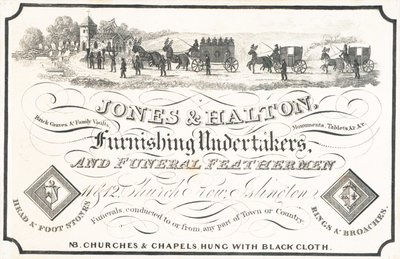 JONES & HALTON,
Brick Graves & Family Vaults,
Monuments, Tablets &c. &c.
Furnishing Undertakers,
AND FUNERAL FEATHERMEN
Church Row, Islington
HEAD & FOOT STONES
RINGS & BROACHES.
Funerals, conducted to or from, any part of Town or Country.
NB. CHURCHES & CHAPELS, HUNG WITH BLACK CLOTH.